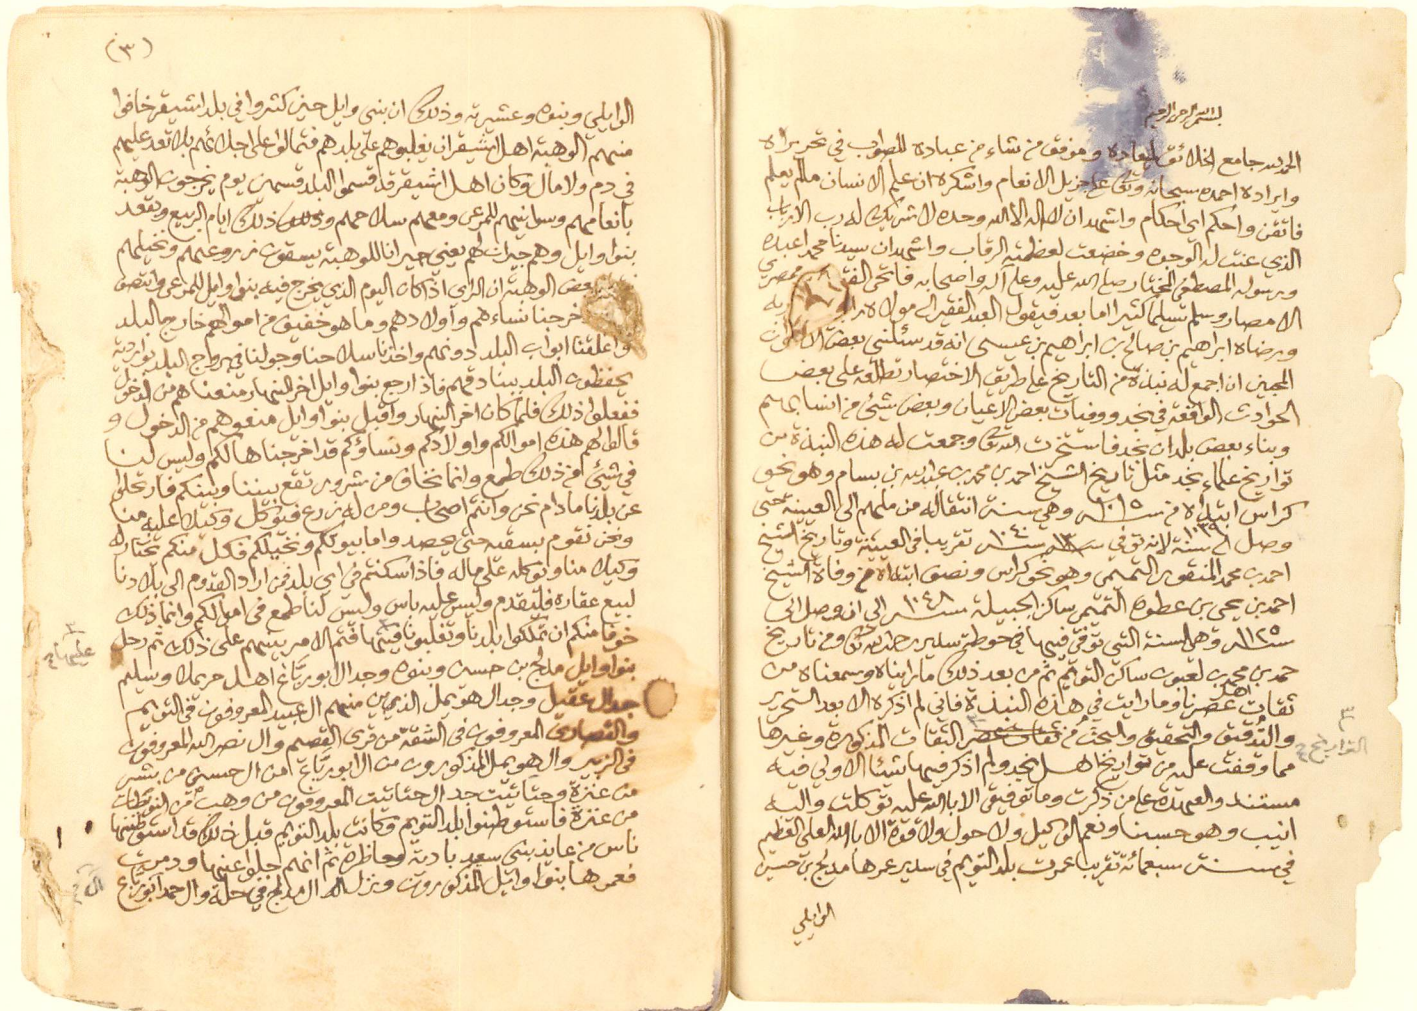 بسم الله الرحمن الرحيم
الحمد لله جامع الخلائق لميعاده وموفق من شاء من عباده للصواب في تحريراه
وايراده احمده سبحانه وتعالى على جزيل الانعام واشكره ان علم الانسان مالم يعلم
فاتقن واحكم اي احكام واشهد ان لا اله الا الله وحده لا شريك له رب الارباب
الذي عنت له الوجوه وخضعت لعظمته الرقاب واشهد ان سيدنا محمدا عبده
ورسوله المصطفى المختار صلى الله عليه وعلى آله واصحابه فاتحي القرى
الامصار وسلم تسليما كثيرا اما بعد فيقول العبد الفقير الى مولاه
وبرضاه ابراهيم بن صالح بن ابراهيم بن عيسى انه قد سئلني بعض الاخوان
المحبين ان اجمع له نبذة من التاريخ على طريق الاختصار تطلعه على بعض
الحوادث الواقعة في نجد ووفيات بعض الاعيان وبعض شيئ من انسابهم
وبناء بعض بلدان نجد فاستخرت الله تعالى وجمعت له هذه النبذة من
تواريخ علماء نجد مثل تاريخ الشيخ احمد بن محمد بن عبدالله بن بسام وهو نحو
كراس ابتداه من سنة ١٠١٥ وهي سنة انتقاله من ملهم الى العيينة حتى
وصل الى سنة ١٠٣٩ لانه توفي سنة ١٠٤٠ تقريبا في العيينة وتاريخ الشيخ
احمد بن محمد المنقور التميمي وهو نحو كراس ونصف ابتداه من وفاة الشيخ
احمد بن يحيى بن عطوه التميمي ساكن الجبيلة سنة ٩٤٨ الى ان وصل الى
سنة ١١٢٥ وهي السنة التي توفي فيها في حوطة سدير رحمه الله تعالى ومن تاريخ
حمد بن محمد بن لعبون ساكن التويم ثم من بعد ذلك ما رايناه وسمعناه من
ثقات اهل عصرنا وما رايت في هذه النبذة فاني لم اذكره الا بعد التحرير
والتدقيق والتحقيق والبحث من الثقات المذكورة وغيرها
مما وقفت عليه من تواريخ اهل نجد ولم اذكر فيها شيئا الا ولي فيه
مستند والعهدة على من ذكرت وما توفيقي الا بالله عليه توكلت واليه
انيب وهو حسبنا ونعم الوكيل ولا حول ولا قوة الا بالله العلي العظيم
في سنة سبعمائة تقريبا عمرت بلد التويم في سدير عمرها مدلج بن حسين
الوايلي
٣
التواريخ
(٣)
الوايلي وبنوه وعشيرته وذلك ان بني وايل حين كثروا في بلد اشيقر خافوا
منهم الوهبة اهل اشيقر ان يغلبوهم على بلدهم فتمالوا على اجلائهم بلا تعد عليهم
في دم ولا مال وكان اهل اشيقر قد قسموا البلد قسمين يوم يخرجون الوهبة
بانعامهم وسوانيهم للمرعى ومعهم سلاحهم وذلك ايام الربيع وتقعد
بنوا وايل وهم جيران لهم يعني جيرانا للوهبة يسقون زروعهم ونخيلهم
بعض الوهبة ان الراي اذا كان اليوم الذي يخرج فيه بنوا وايل للمرعى وانتصف
اخرجنا نساءهم واولادهم وما هو خفيف من اموالهم خارج البلد
واغلقنا ابواب البلد دونهم واخذنا سلاحنا وجعلنا في بروج البلد بواردية
يحفظون البلد ببنادقهم فاذا رجع بنوا وايل اخر النهار منعناهم من الدخول
ففعلوا ذلك فلما كان اخر النهار واقبل بنوا وايل منعوهم من الدخول و
قالوا لهم هذه اموالكم واولادكم ونساؤكم قد اخرجناها لكم وليس لنا
في شيئ من ذلك طمع وانما نخاف من شرور تقع بيننا وبينكم فارتحلوا
عن بلدنا ما دام نحن وانتم اصحاب ومن له زرع فيوكل وكيلا عليه منا
ونحن نقوم بسقيه حتى يحصد واما بيوتكم ونخيلكم فكل منكم يختار له
وكيلا منا ويوكله على ماله فاذا سكنتم في اي بلد فمن اراد القدوم الى بلادنا
لبيع عقاره فليقدم وليس عليه باس وليس لنا طمع في اموالكم وانما ذلك
خوفا منكم ان تملكوا بلدنا وتغلبونا فيها فتم الامر بينهم على ذلك ثم رحل
بنوا وايل مدلج بن حسين وبنوه وجد ال ابو رباع اهل حريملا وسليم
جد ال عقيل وجد ال هويمل الذين منهم ال عبيد المعروفون في التويم
والقصارى المعروفون في الشقة من قرى القصيم وال نصرالله المعروفون
في الزبير وال هويمل المذكورون من ال ابو رباع من ال حسني من بشر
من عنزة وحتايت جد ال حتايت المعروفون من وهب من النويطات
من عنزة فاستوطنوا بلد التويم وكانت بلد التويم قبل ذلك قد استوطنها
ناس من عايذ بني سعيد بادية وحاضرة ثم انهم جلوا عنها ودمرت
فعمرها بنوا وائل المذكورون ونزل ال مدلج في حلة وال حمد ابو رباع
٣
عليها